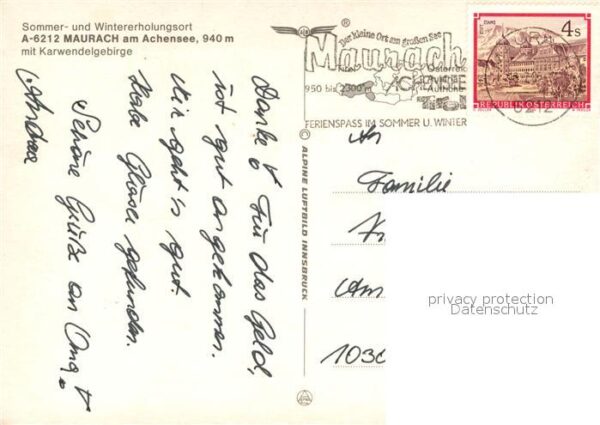 Sommer- und Wintererholungsort
A-6212 MAURACH am Achensee, 940 m
mit Karwendelgebirge
Danke! Für das Geld,
ist gut angekommen.
Mir geht's gut.
Habe Gläser gefunden.
Schöne Grüße an Oma!
Andrea
ALPINE LUFTBILD INNSBRUCK
Der kleine Ort am großen See
Maurach
Tirol Österreich
ACHENSEE
950 bis 2300 m
FERIENSPASS IM SOMMER U. WINTER
6212
STAMS
4 S
REPUBLIK ÖSTERREICH
An
Familie
Am
1030
privacy protection
Datenschutz